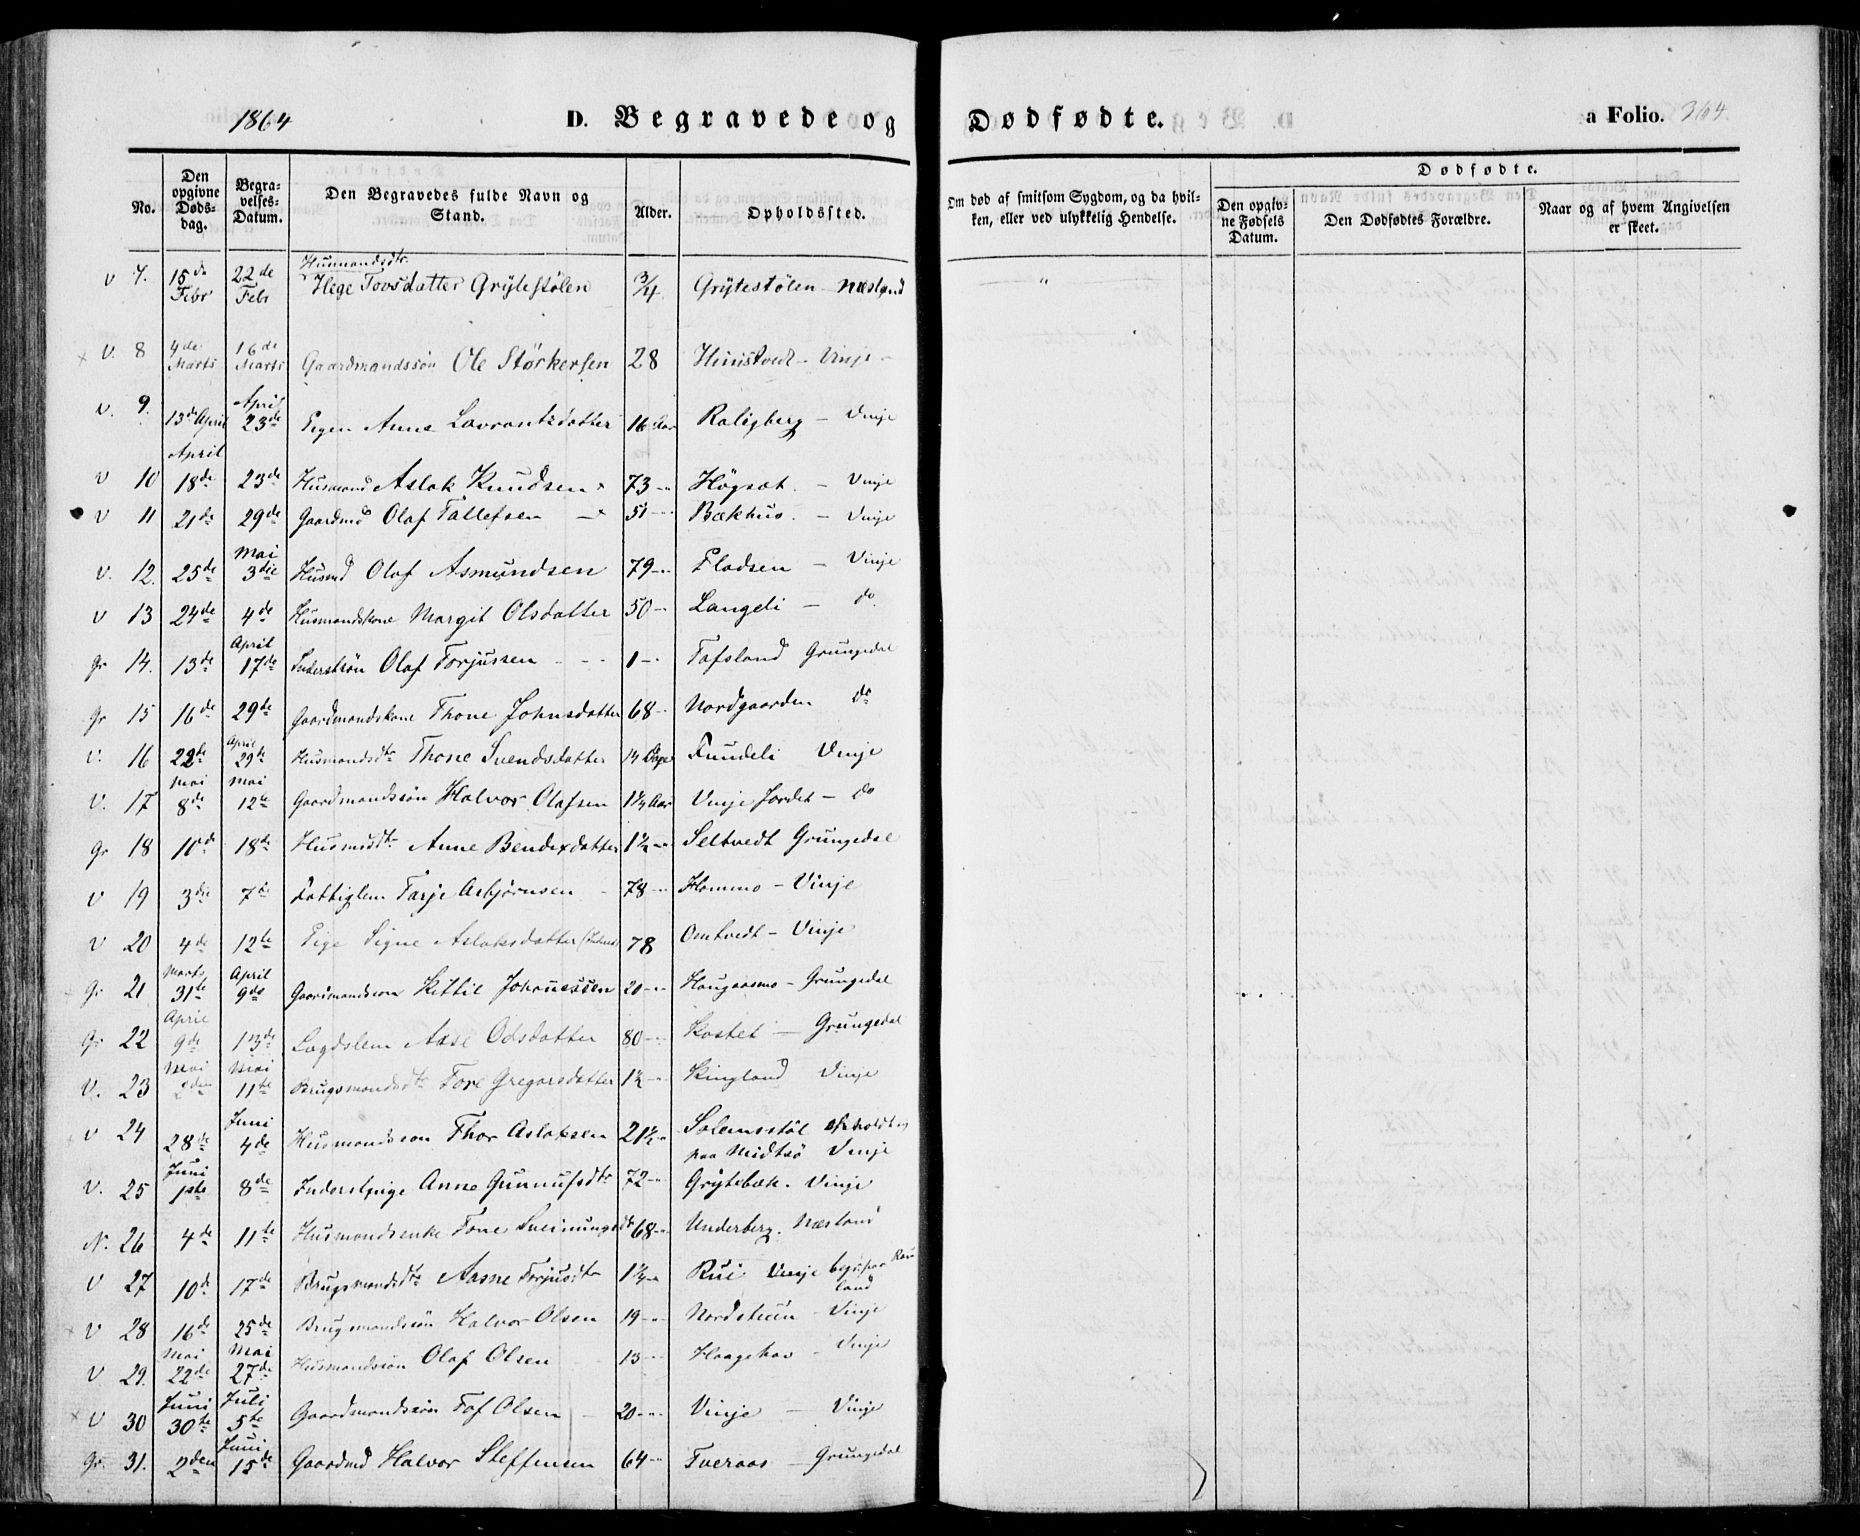 1864 D. Begravede og Dødfødte. a Folio. 364.
No. Den opgivne Døds-dag. Begra-velses-Datum. Den Begravedes fulde Navn og Stand. Alder. Opholdssted. Om død af smitsom Sygdom, og da hvil-ken, eller ved ulykkelig Hendelse. Dødfødte. Den opgiv-ne Fødsels Datum. Den Dødfødtes Forældre. Naar og af hvem Angivelsen er skeet.
Husmandsdtr.
v 7. 15de Febr 22de Febr Hege Tovsdatter Grytestølen 3/4 Grytestølen - Næsland "
x V. 8 4de Marts 16de Marts Gaardmandssøn Ole Størkersen 28 Hunstvedt - Vinje -
V. 9. 13de April April 23de Pigen Anne Lavrantsdatter 16 Aar Raligberg - Vinje
v 10 April 18de 23de Husmand Aslak Knudsen 73 -" Høgsæt. - Vinje
v 11 21de 29de Gaardmd Olaf Tallefsen 51 -" Bækhus. - Vinje
v. 12. 25de Mai 3die Husmd Olaf Asmundsen 79 -" Flodsen - Vinje
v 13 24de 4de Husmandskone Margit Olsdatter 50 -" Langeli - do.
gr 14. 13de April 17de Inderstsøn Olaf Torjussen - - - 1 -" Tofsland Grungedal
gr 15 16de 29de Gaardmandskone Thone Johnsdatter 68 -" Nordgaarden do
v. 16 22de April 29te Husmandsdtr Thone Svendsdatter 14 Dage Fundeli Vinje
V. 17 Mai 8de Mai 12te Gaardmandssøn Halvor Olafsen 1 1/4 Aar Vinje Jordet - do
gr 18 10de 18de Husmdsdtr Anne Bendixdatter 1 1/2 -" Seltvedt Grungedal
v 19 3die 7de Fattiglem Tarje Asbjørnsen - 78 -" Hommo - Vinje
v 20 4de 12te Pige Signe Aslaksdatter 78 Omtvedt - Vinje
Gr 21 Marts 31te April 9de Gaardmandsson Kittil Johannessen 20 -" Haugaasmo - Grungedal
Gr 22 April 9de 13de Lægdslem Aase Odsdatter 80 -" Kostet - Grungedal
V. 23 Mai 2den Mai 11te Brugsmandsdtr Tore Gregarsdatter 1 1/2 -" Kingland Vinje
v 24 28de Juni 4de Husmandsson Thor Aslaksen 21 1/2 -" Solemsstøl opholdt sig
paa Midtsø Vinje
V. 25 Juni 1ste 8de Inderstpige Anne Gunnufsdtr 72 -" Grytebæk. Vinje
N. 26 4de 11te Husmandsenke Tone Sveinungsdtr 68 -" Underberg. Næsland
V 27 10de 17de Brugsmandsdtr Aasne Torjusdtr Rui Vinje begr: paa Rau
land
x V 28 16de 25de Brugsmandssøn Halvor Olsen 19 -" Nordstuen - Vinje
V 29. Mai 22de Mai 27de Husmandssøn Olaf Olsen 13 -" Haagehav - Vinje
x V 30 Juni 30te Juli 5te Gaardmandssøn Tof Olsen - 20 -" Vinje - Vinje
Gr. 31. 2den Juni 15de Gaardmd Halvor Steffensen 64 -" Tveraas - Grungedal